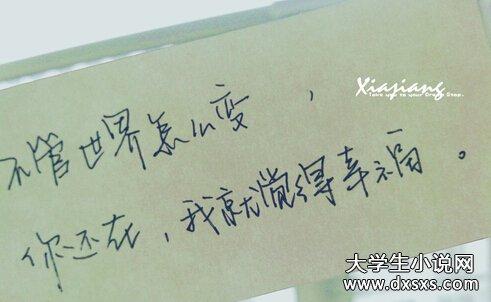 Xiajiang
Take you to your Dream Stop.
不管世界怎么变，
你还在，我就觉得幸福。
大学生小说网
www.dxsxs.com